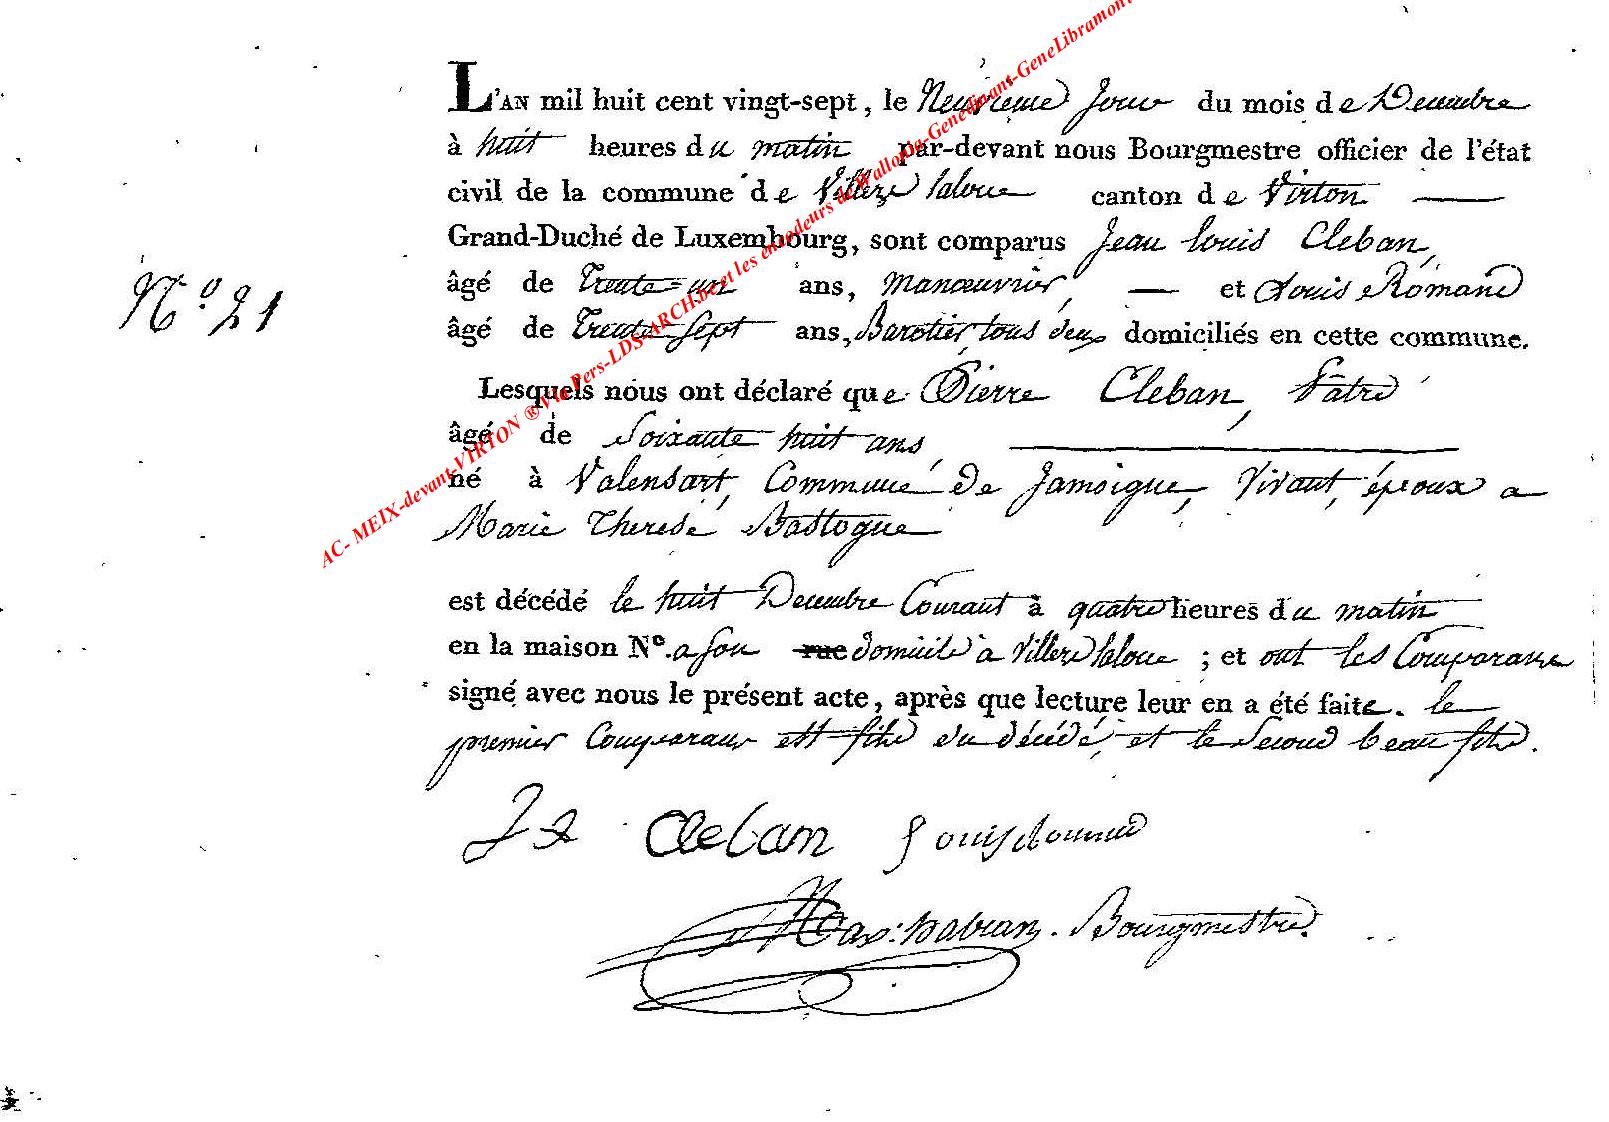 L'AN mil huit cent vingt-sept, le Neuvieme Jour du mois de Decembre
à huit heures du matin par-devant nous Bourgmestre officier de l'état
civil de la commune de Villers laloue canton de Virton —
Grand-Duché de Luxembourg, sont comparus Jean louis Cleban,
âgé de Trente-un ans, manœuvrier, — et Louis Romand
N.º 21
âgé de Trente-sept ans, Barotier, tous deux domiciliés en cette commune.
Lesquels nous ont déclaré que Pierre Cleban, Patre
âgé de Soixante huit ans,
né à Valensart, Commune de Jamoigne, Vivant, époux a
Marie Therese Bastogne
est décédé le huit Decembre Courant à quatre heures du matin
en la maison Nº. a son rue domicile à Villers laloue ; et ont les Comparans
signé avec nous le présent acte, après que lecture leur en a été faite. le
premier Comparant est fils du décédé, et le Second beau fils.
Cleban
Bourgmestre.
AC- MEIX-devant-VIRTON ® Via Pers-LDS-ARCH.be et les encodeurs de Wallonia-Genedinant-GeneLibramont